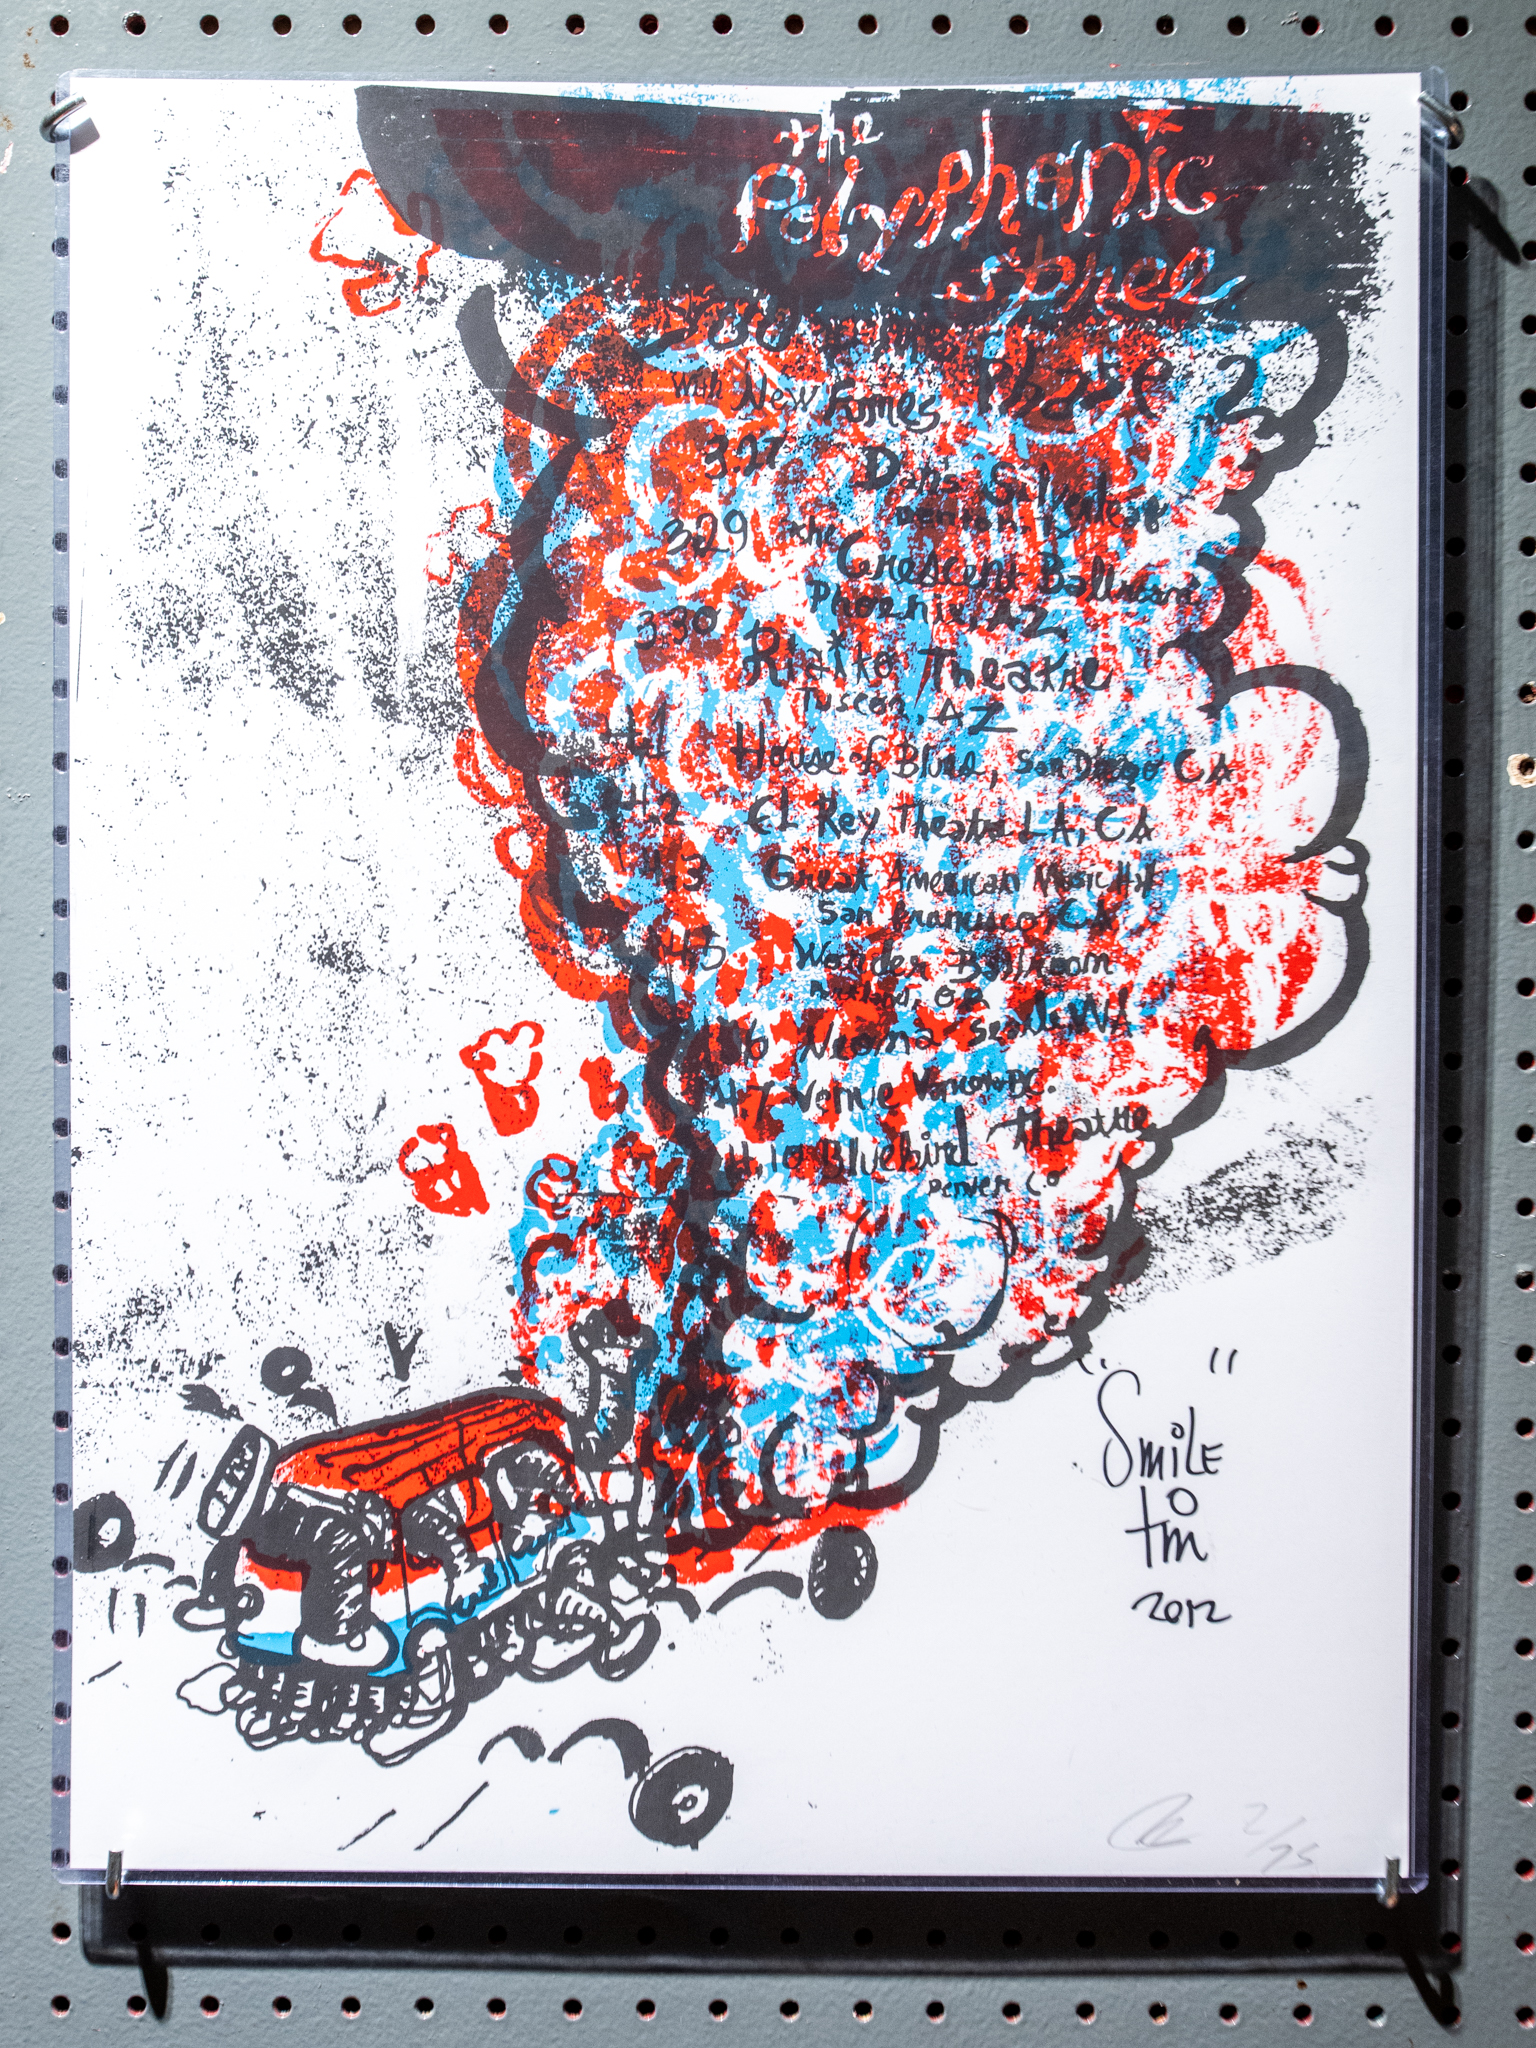 the
Polyphonic
spree
With New Fumes Phase 2
3.27 Dan's Silverleaf
Denton
3.29 the Crescent Ballroom
Phoenix, AZ
3.30 Rialto Theatre
Tuscon, AZ
4.1 House of Blues, San Diego CA
4.2 EL Rey Theatre LA, CA
4.3 Great American Music Hall
San Francisco, CA
4.5 Wonder Ballroom
Portland, OR
4.6 Neoma Seattle WA
4.7 Venue
4.10 Bluebird Theatre
Denver Co
"Smile"
tm
2012
2/75